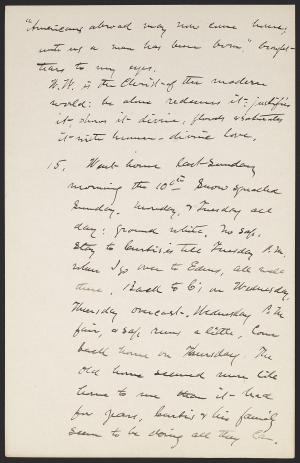 "Americans abroad may now come home;
with us a man has been born," brought
tears to my eyes.
W.W. is the Christ of the modern
world: he alone redeems it, justifies
it shows it divine, floods & saturates
it with human-divine love.
15. Went home last Sunday
morning the 10th Snow squalled
Sunday. Monday, & Tuesday all
day: ground white. No sap.
Stay to Curtis's till Tuesday P.M.
when I go over to Edens, all well
there. Back to C's on Wednesday,
Thursday overcast. Wednesday P.M.
fair, & sap runs a little, Come
back home on Thursday. The
old home seemed more like
home to me than it had
for years, Curtis & his family
seem to be doing all they can.